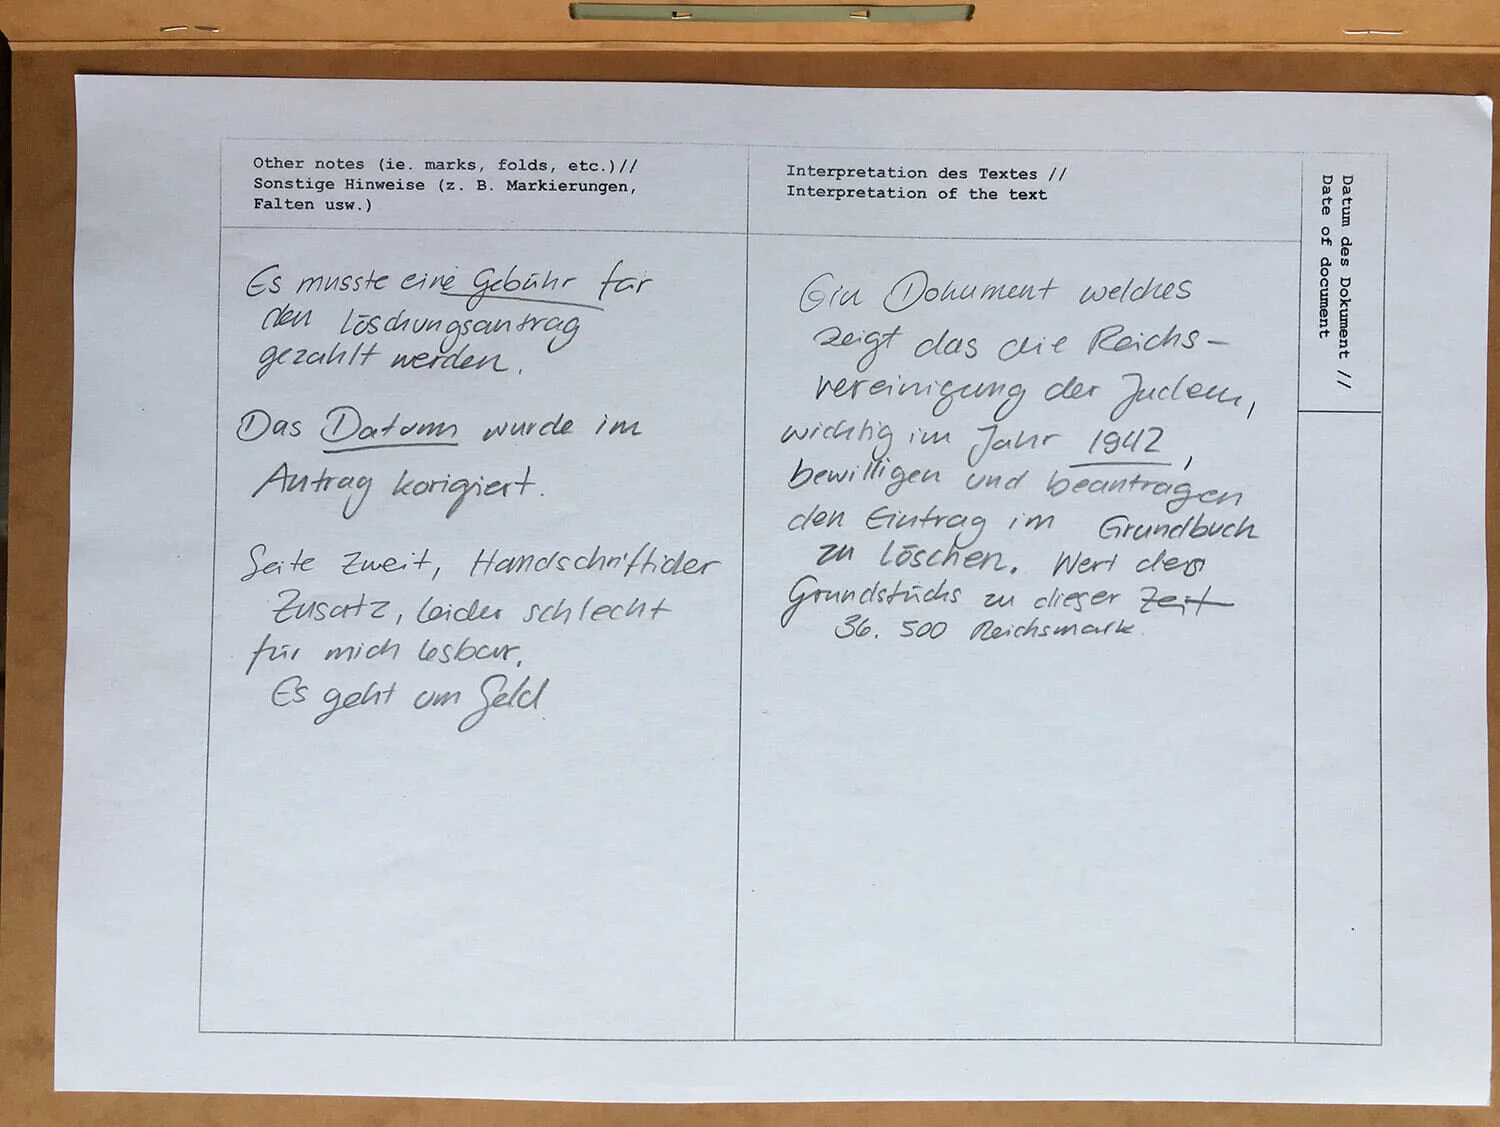 Other notes (ie. marks, folds, etc.)//
Sonstige Hinweise (z. B. Markierungen,
Falten usw.)
Es musste eine Gebühr für
den Löschungsantrag
gezahlt werden.
Das Datum wurde im
Antrag korigiert.
Seite Zweit, Handschriftlider
Zusatz, leider schlecht
für mich lesbar.
Es geht um Geld
Interpretation des Textes //
Interpretation of the text
Ein Dokument welches
zeigt das die Reichs-
vereinigung der Juden,
wichtig im Jahr 1942,
bewilligen und beantragen
den Eintrag im Grundbuch
zu löschen. Wert des
Grundstücks zu dieser Zeit
36.500 Reichsmark.
Datum des Dokument //
Date of document